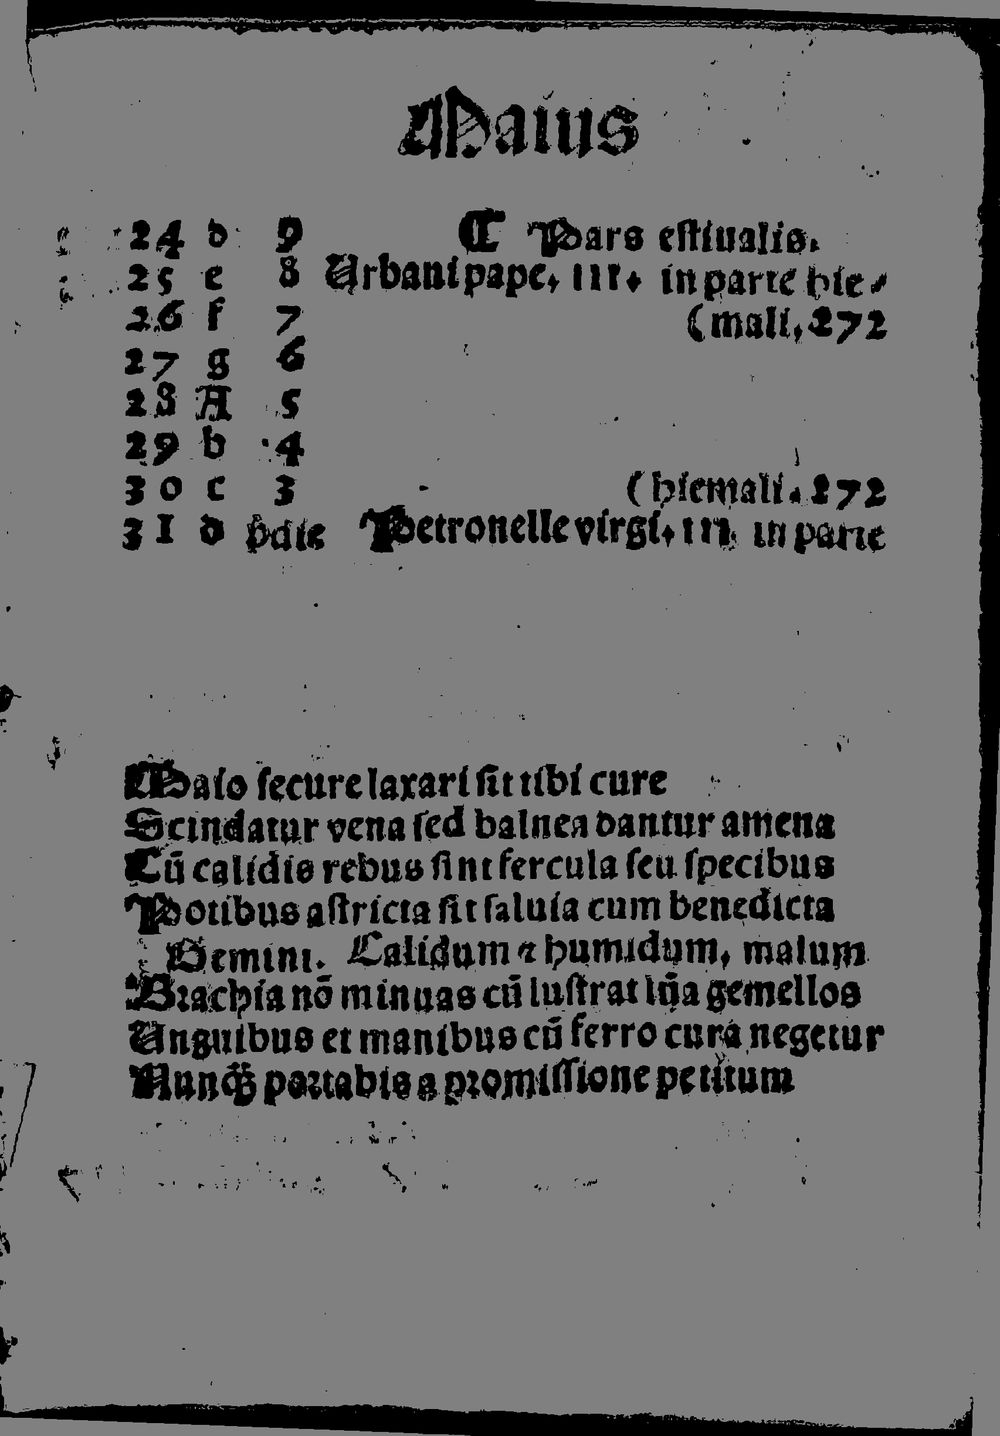 Maius
24 d 9 ¶ Pars estiualis.
25 e 8 Urbani pape. III. in parte hie⸗
26 f 7 (mali. 272
27 g 6
28 A 5
29 b 4
30 c 3 (hiemali. 272
31 d pdie Petronelle virgi. III. in parte
Maio secure laxari sit tibi cure
Scindatur vena sed balnea dantur amena
Cū calidis rebus sint fercula seu specibus
Potibus astricta sit saluia cum benedicta
Gemini. Calidum ⁊ humidum, malum
Brachia nō minuas cū lustrat lūa gemellos
Unguibus et manibus cū ferro cura negetur
Nunqȝ portabis a promissione petitum